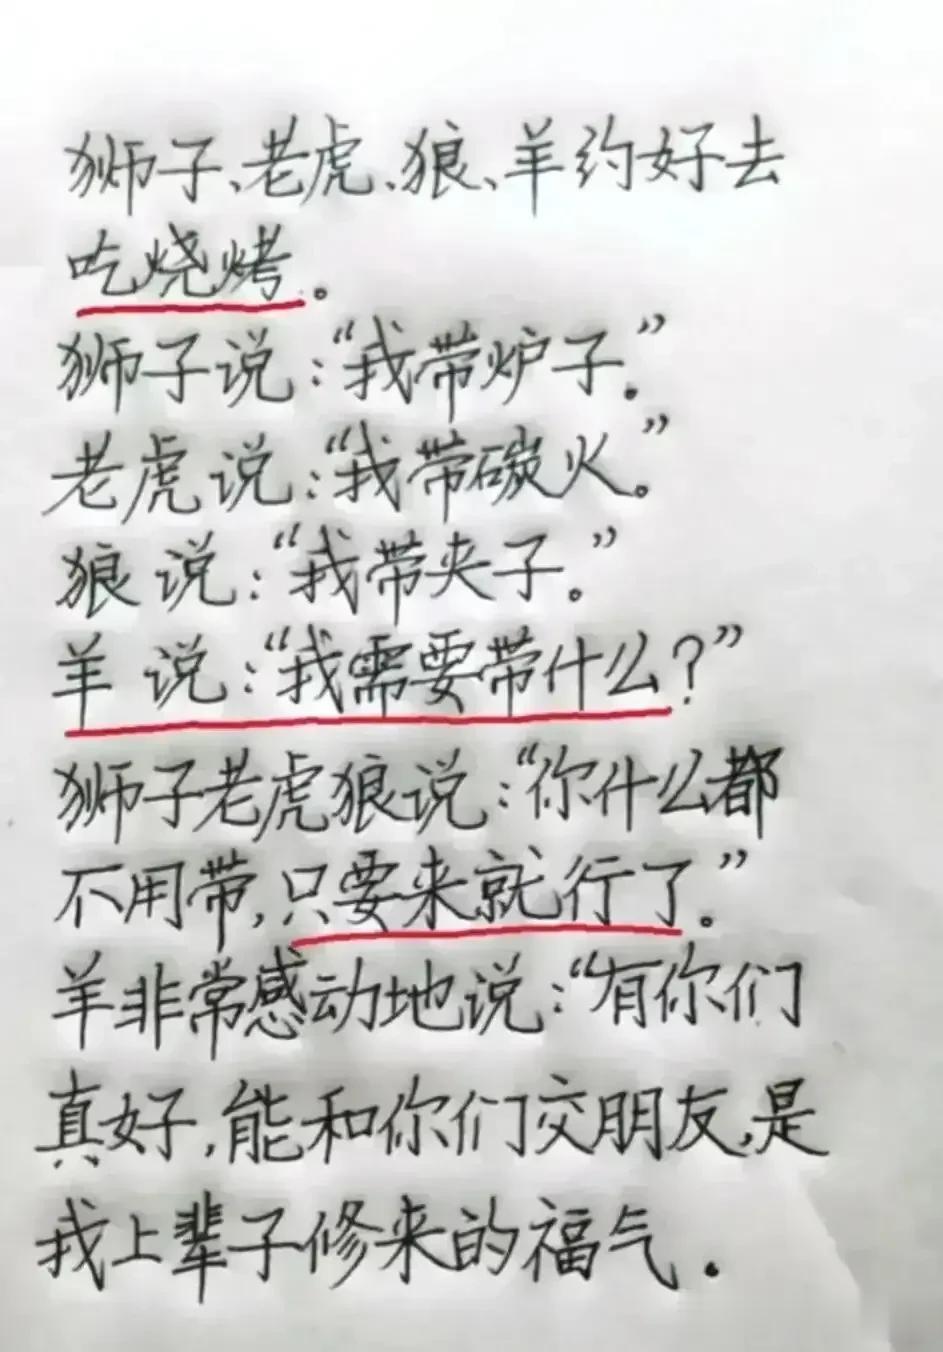 狮子、老虎、狼、羊约好去
吃烧烤。
狮子说:“我带炉子。”
老虎说:“我带碳火。”
狼说:“我带夹子。”
羊说:“我需要带什么?”
狮子老虎狼说:“你什么都
不用带,只要来就行了。”
羊非常感动地说:“有你们
真好,能和你们交朋友,是
我上辈子修来的福气.